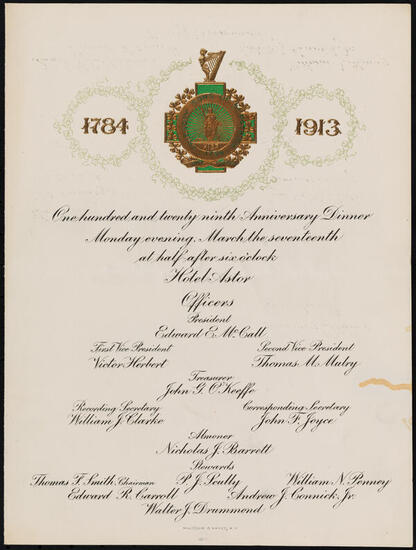 1784 1913
One hundred and twenty ninth Anniversary Dinner
Monday evening, March the seventeenth
at half after six o'clock
Hotel Astor
Officers
President
Edward E. McCall
First Vice President Second Vice President
Victor Herbert Thomas M. Mulry
Treasurer
John G. O'Keeffe
Recording Secretary Corresponding Secretary
William J. Clarke John F. Joyce
Almoner
Nicholas J. Barrett
Stewards
Thomas F. Smith, Chairman P. J. Scully William N. Penney
Edward R. Carroll Andrew J. Connick, Jr.
Walter J. Drummond